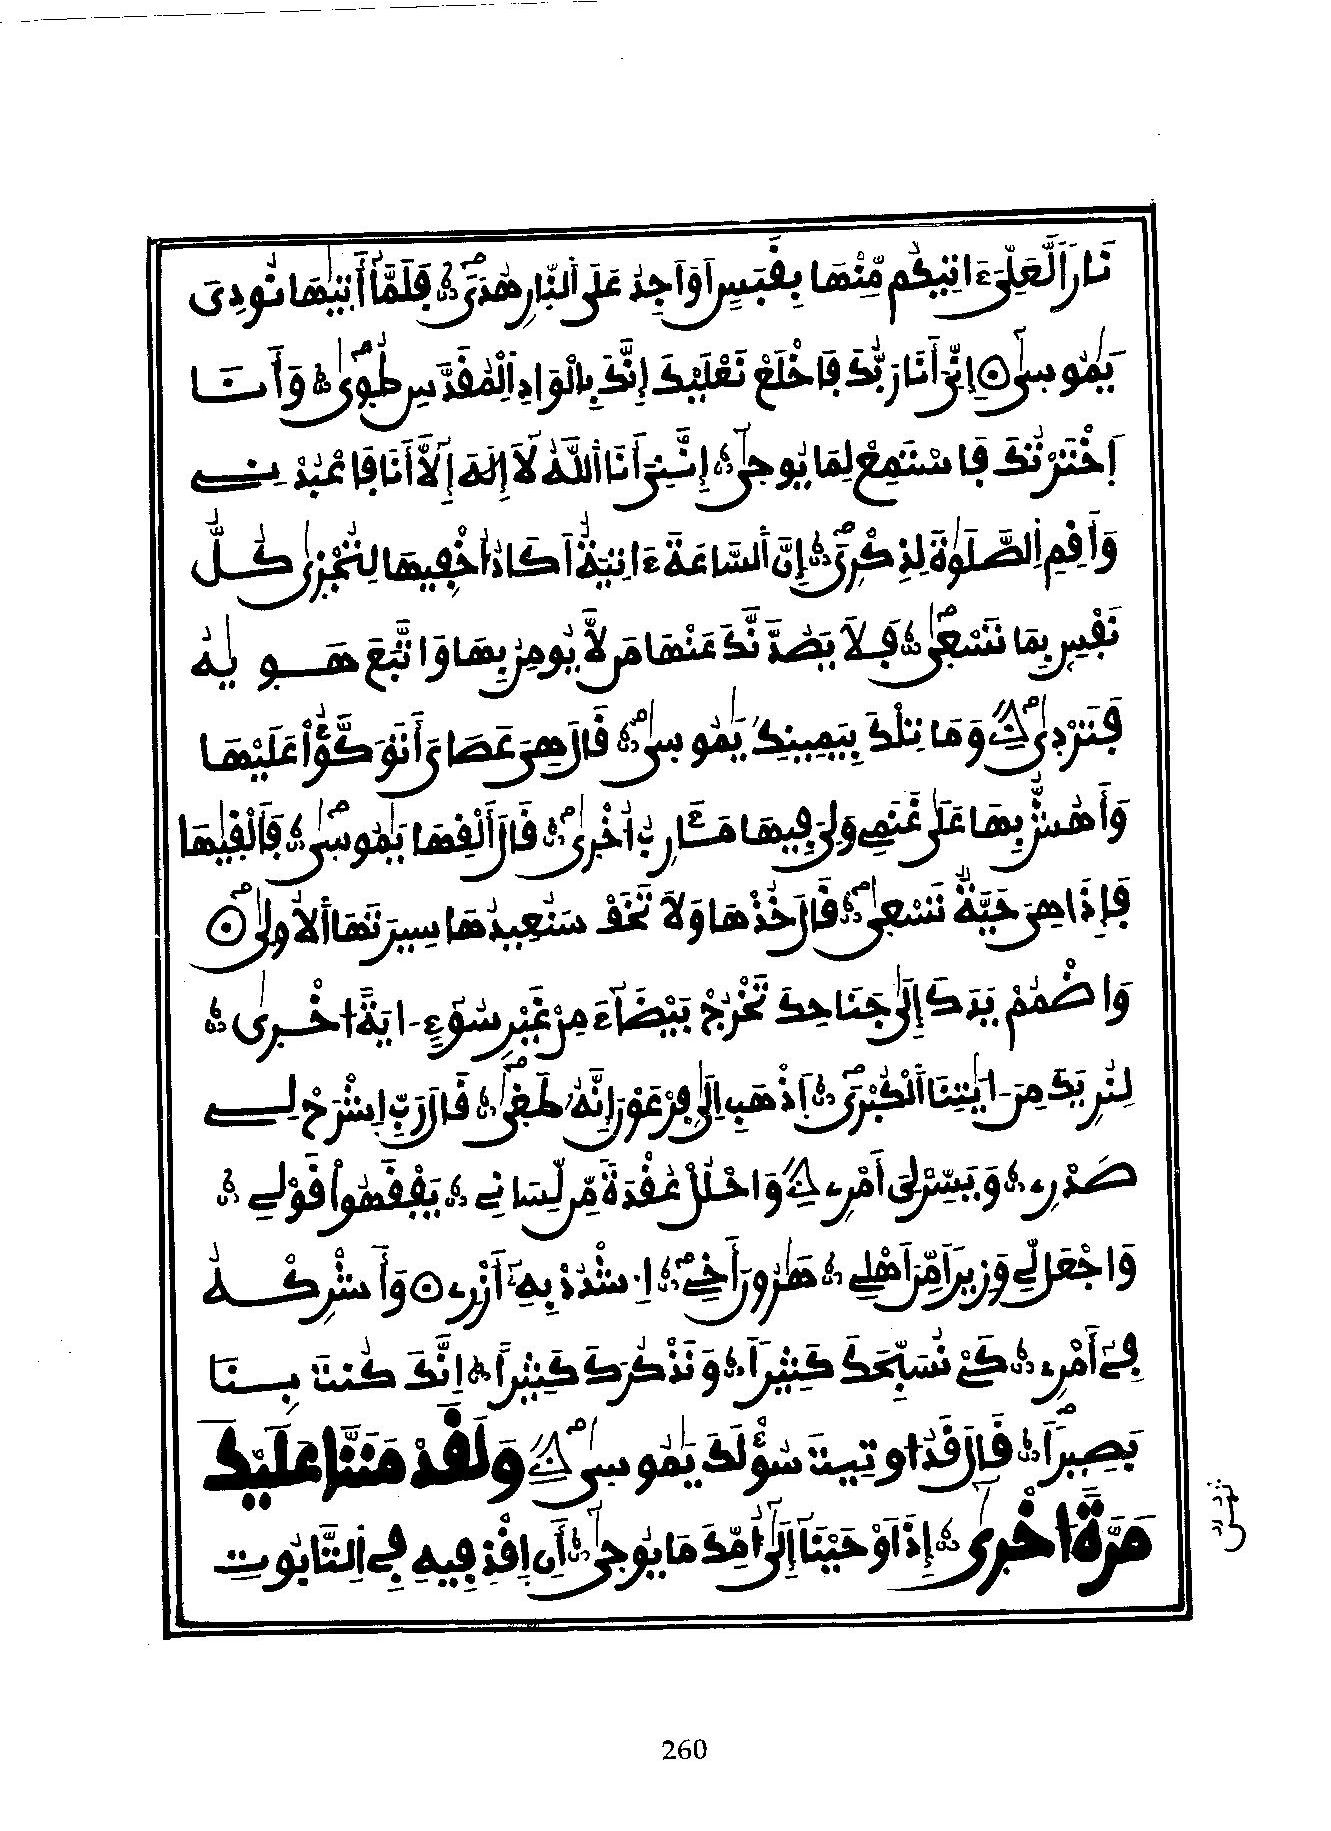 نَاراً لَّعَلِّىَ ءَاتِيكُم مِّنْهَا بِقَبَسٍ اَوَ اَجِدُ عَلَى اَلنّ۪ارِ هُدىً فَلَمَّآ أَت۪يٰهَا نُودِىَ
يَٰمُوسىٰٓ إِنِّىَ أَنَا رَبُّكَ فَاخْلَعْ نَعْلَيْكَ إِنَّكَ بِالْوَادِ اِلْمُقَدَّسِ طُوىٰ وَأَنَا
اَخْتَرْتُكَ فَاسْتَمِعْ لِمَا يُوحىٰٓ إِنَّنِىَ أَنَا اَللَّهُ لَآ إِلَٰهَ إِلَّآ أَنَا فَاعْبُدْنِے
وَأَقِمِ اِلصَّلَوٰةَ لِذِكْرِىَ إِنَّ اَلسَّاعَةَ ءَاتِيَةٌ اَكَادُ أُخْفِيهَا لِتُجْزىٰ كُلُّ
نَفْسٍ بِمَا تَسْعىٰ فَلَا يَصُدَّنَّكَ عَنْهَا مَن لَّا يُومِنُ بِهَا وَاتَّبَعَ هَوٜيٰهُ
فَتَرْدىٰ وَمَا تِلْكَ بِيَمِينِكَ يَٰمُوسىٰ قَالَ هِىَ عَصَاىَ أَتَوَكَّؤُاْ عَلَيْهَا
وَأَهُشُّ بِهَا عَلَىٰ غَنَمِے وَلِىَ فِيهَا مَـَٔارِبُ أُخْرىٰ قَالَ أَلْقِهَا يَٰمُوسىٰ فَأَلْقٜيٰهَا
فَإِذَا هِىَ حَيَّةٌ تَسْعىٰ قَالَ خُذْهَا وَلَا تَخَفْ سَنُعِيدُهَا سِيرَتَهَا اَلُاولىٰ
وَاضْمُمْ يَدَكَ إِلَىٰ جَنَاحِكَ تَخْرُجْ بَيْضَآءَ مِنْ غَيْرِ سُوٓءٍ ـ ايَةً اخْرىٰ
لِنُرِيَكَ مِنَ ـ ايَٰتِنَا اَلْكُبْرَى اَذْهَبِ اِلَىٰ فِرْعَوْنَ إِنَّهُ طَغىٰ قَالَ رَبِّ اِشْرَحْ لِے
صَدْرِے وَيَسِّرْ لِىَ أَمْرِے وَاحْلُلْ عُقْدَةً مِّن لِّسَانِے يَفْقَهُواْ قَوْلِے
وَاجْعَل لِّے وَزِيراً مِّنَ اَهْلِے هَٰرُونَ أَخِے اِ۟شْدُدْ بِهِۦٓ أَزْرِے وَأَشْرِكْهُ
فِىٓ أَمْرِے كَےْ نُسَبِّحَكَ كَثِيراً وَنَذْكُرَكَ كَثِيراً اِنَّكَ كُنتَ بِنَا
بَصِيراً قَالَ قَدُ اوتِيتَ سُؤْلَكَ يَٰمُوسىٰ وَلَقَدْ مَنَنَّا عَلَيْكَ
مَرَّةً اخْرىٰٓ إِذَ اَوْحَيْنَآ إِلَىٰٓ أُمِّكَ مَا يُوحىٰٓ أَنِ اِقْذِفِيهِ فِے اِلتَّابُوتِ
260